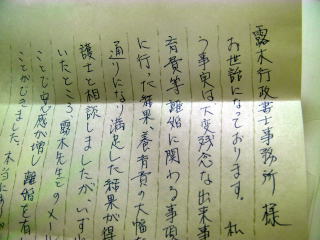 露木行政書士事務所 様
お世話になっております。 私
う事実は、大変残念な出来事
育費等離婚に関わる事項
に行った結果、養育費の大幅な
通りになり満足した結果が得
護士と相談しましたが、いず
いたところ、露木先生とのメー
ことで安心感が増し離婚を有
ことができました。本当にあり